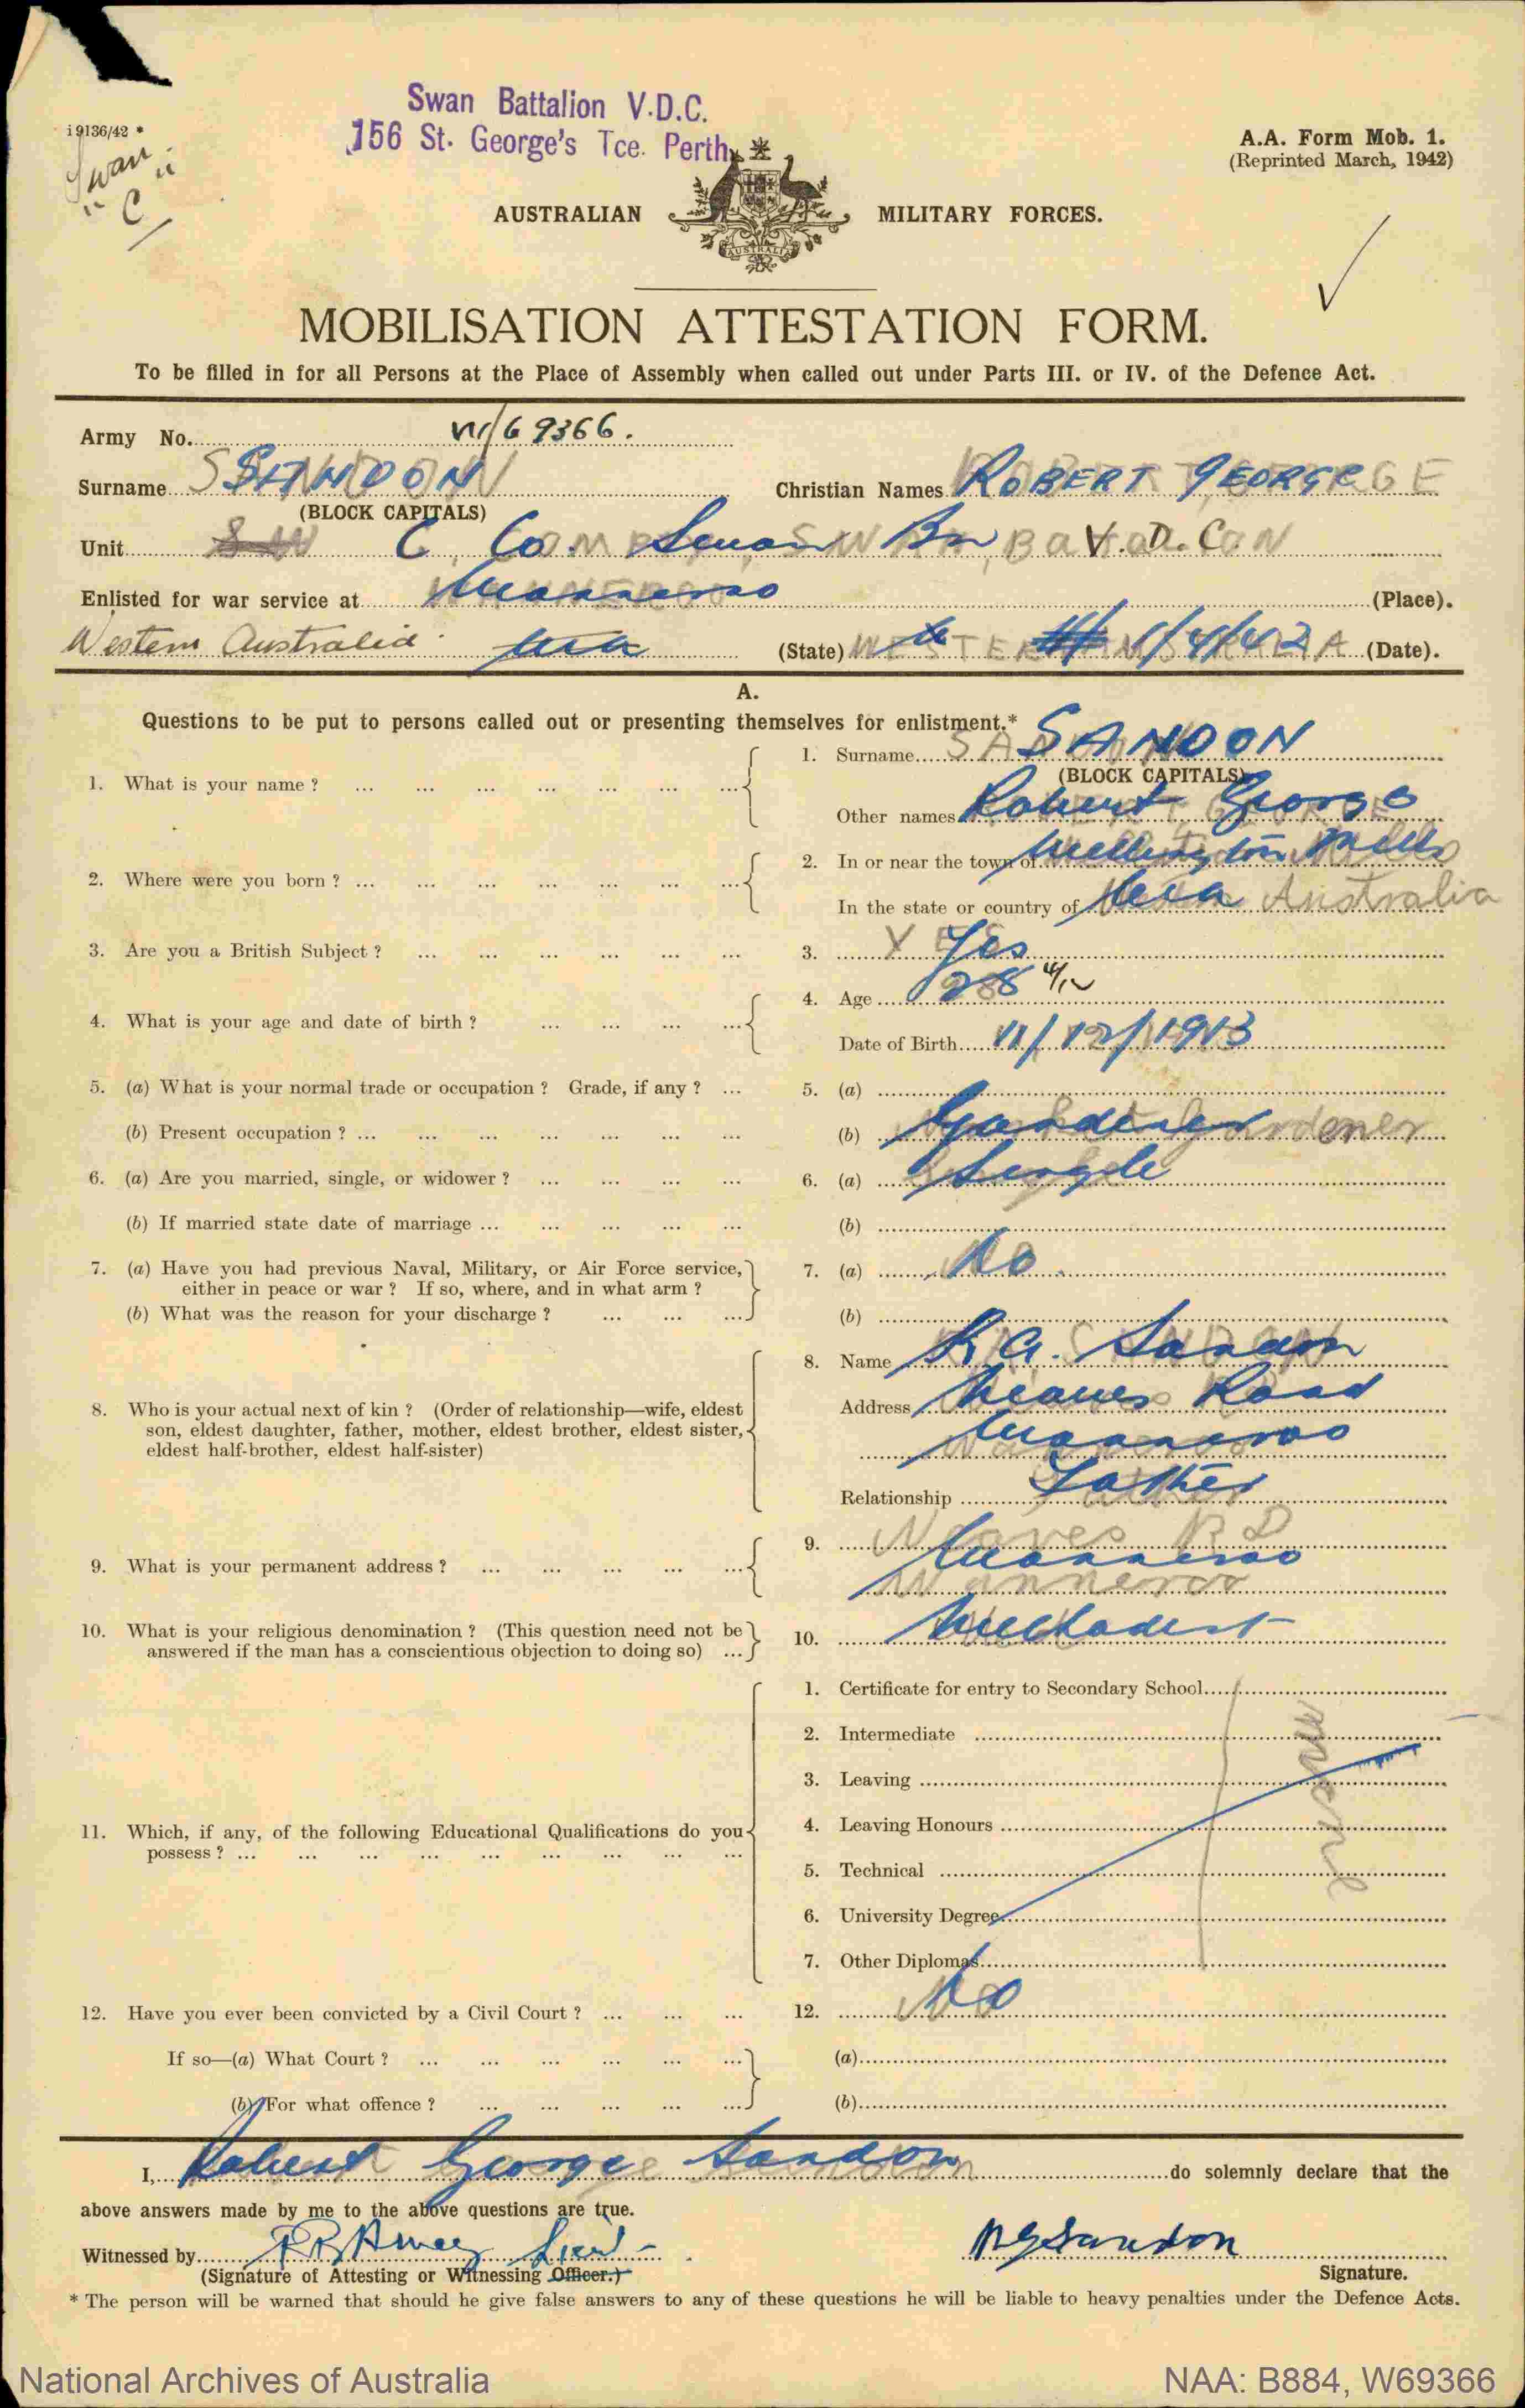 Swan Battalion V.D.C.
156 St. George's Tce. Perth
i 9136/42 *
Swan
" C "
A.A. Form Mob. 1.
(Reprinted March, 1942)
AUSTRALIAN MILITARY FORCES.
AUSTRALIA
MOBILISATION ATTESTATION FORM.
To be filled in for all Persons at the Place of Assembly when called out under Parts III. or IV. of the Defence Act.
Army No. W69366.
Surname SANDON Christian Names ROBERT GEORGE
(BLOCK CAPITALS)
Unit C Co. Swan Bn V.D.C.
Enlisted for war service at Wanneroo (Place).
Western Australia (State) 1/4/42 (Date).
A.
Questions to be put to persons called out or presenting themselves for enlistment.*
1. What is your name ? 1. Surname SANDON
(BLOCK CAPITALS)
Other names Robert George
2. Where were you born ? 2. In or near the town of Wellington Mills
In the state or country of West Australia
3. Are you a British Subject ? 3. Yes
4. What is your age and date of birth ? 4. Age 28 4/12
Date of Birth 11/12/1913
5. (a) What is your normal trade or occupation ? Grade, if any ? 5. (a)
(b) Present occupation ? (b) Gardener
6. (a) Are you married, single, or widower ? 6. (a) Single
(b) If married state date of marriage (b)
7. (a) Have you had previous Naval, Military, or Air Force service, 7. (a) No
either in peace or war ? If so, where, and in what arm ?
(b) What was the reason for your discharge ? (b)
8. Name R.A. Sandon
8. Who is your actual next of kin ? (Order of relationship—wife, eldest Address Neaves Road
son, eldest daughter, father, mother, eldest brother, eldest sister, Wanneroo
eldest half-brother, eldest half-sister)
Relationship Father
9. Neaves RD
9. What is your permanent address ? Wanneroo
10. What is your religious denomination ? (This question need not be 10. Methodist
answered if the man has a conscientious objection to doing so)
1. Certificate for entry to Secondary School
2. Intermediate
3. Leaving
none
11. Which, if any, of the following Educational Qualifications do you 4. Leaving Honours
possess ?
5. Technical
6. University Degree
7. Other Diplomas
12. Have you ever been convicted by a Civil Court ? 12. No
If so—(a) What Court ? (a)
(b) For what offence ? (b)
I, Robert George Sandon do solemnly declare that the
above answers made by me to the above questions are true.
Witnessed by Lieut RGSandon
(Signature of Attesting or Witnessing Officer.) Signature.
* The person will be warned that should he give false answers to any of these questions he will be liable to heavy penalties under the Defence Acts.
National Archives of Australia NAA: B884, W69366